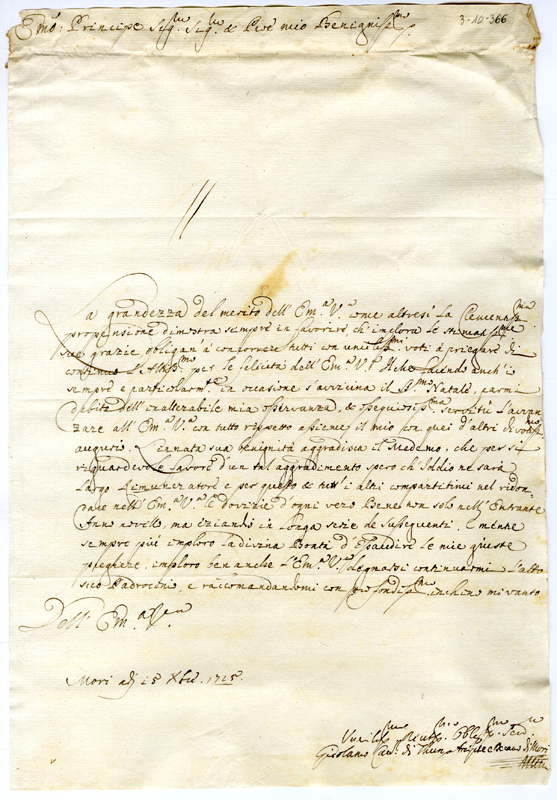 3-10-366
Em̃o: Principe Sig.r Sig.r & Pñe mio Benignis.mo
La grandezza del merito dell' Em.a V.a come altresi la Clemen.ma
propensione dimostra sempre in favorire ch' implora le stimatis.me
sue grazie obligan' à concorrere tutti con umilis.mi voti à priegare di
continuo l'Altis.mo per le felicità dell' Em.a V.a Il che facendo anch' io
sempre e particolarm.te in occasione s'avvicina il S.mo Natale, parmi
debito dell' inalterabile mia osservanza, & ossequiosis.ma servitù l'avvan
zare all' Em.a V.a con tutto rispetto assieme il mio con quei d'altri divotis.mo
augurio. L'innata sua benignità aggradisca il medemo, che per si
riguardevole favore d'un tal aggradimento spero ch' Iddio ne sarà
largo Remuneratore e per questo & tutti i altri compartitimi nel ridon-
dare nell' Em.a V.a le dovizie d'ogni vero Bene non solo nell' Entrante
Anno novello, ma eziandio in longa serie de susseguenti, mentre
sempre più imploro la divina Bontà d'Esaudire le mie giuste
preghiere, imploro ben anche l'Em.a V.a degnarsi continuarmi l'alto
suo Padrocinio, e raccomandandomi con profondis.mo inchino mi vanto
Dell' Em.a V.ra
Mori adj 15 Xbre. 1725.
Umilis.mo Divotis.mo Obligatis.mo Ser.
Girolamo Cav. di Thunn Arciprete di Mori